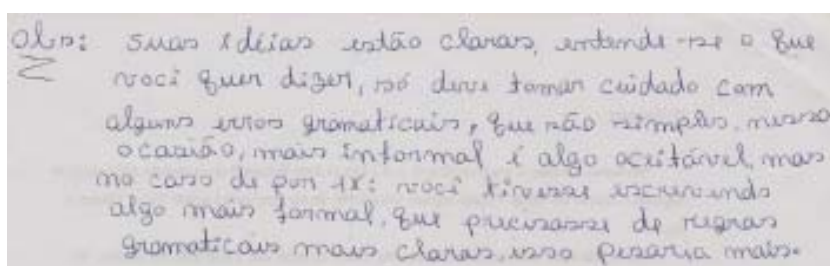 Obs: suas idéias estão claras, entende-se o que
você quer dizer, só deve tomar cuidado com
alguns erros gramaticais, que são simples, nessa
ocasião, mais informal é algo aceitável, mas
no caso de por ex: você tivesse escrevendo
algo mais formal, que precisasse de regras
gramaticais mais claras, isso pesaria mais.